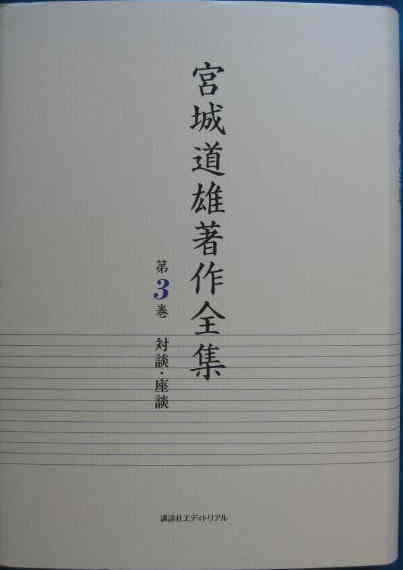 宮城道雄著作全集
第3巻 対談・座談
講談社エディトリアル